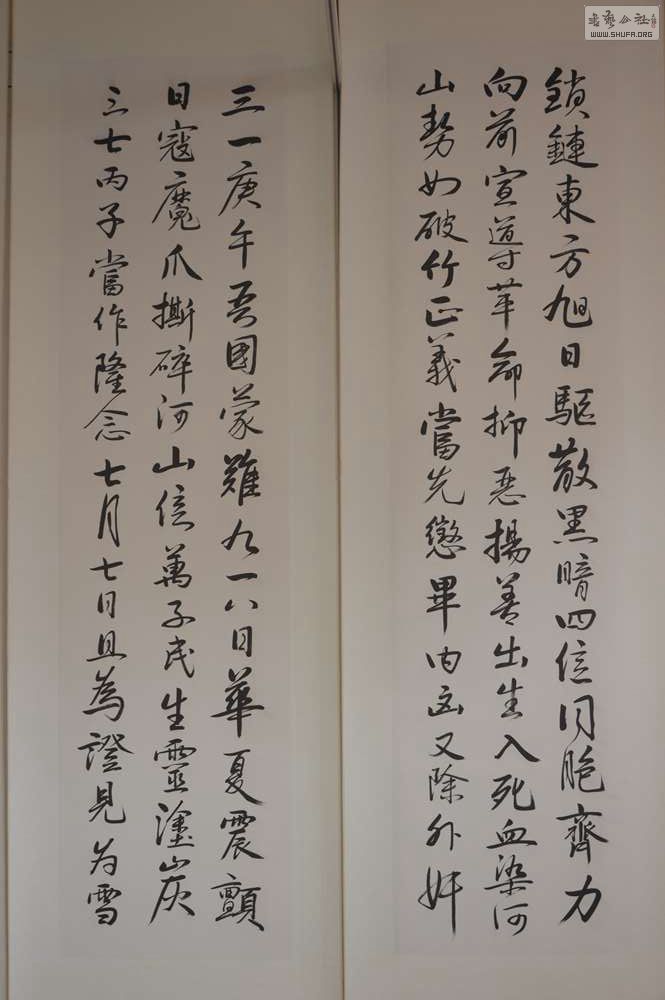 鎖鏈東方旭日驅散黑暗四億同胞齊力
向前宣導革命抑惡揚善出生入死血染河
山勢如破竹正義當先懲畢内凶又除外奸
三一庚午吾國蒙難九一八日華夏震顫
日寇魔爪撕碎河山億萬子民生靈塗炭
三七丙子當作隆念七月七日且為證見为雪
WWW.SHUFA.ORG